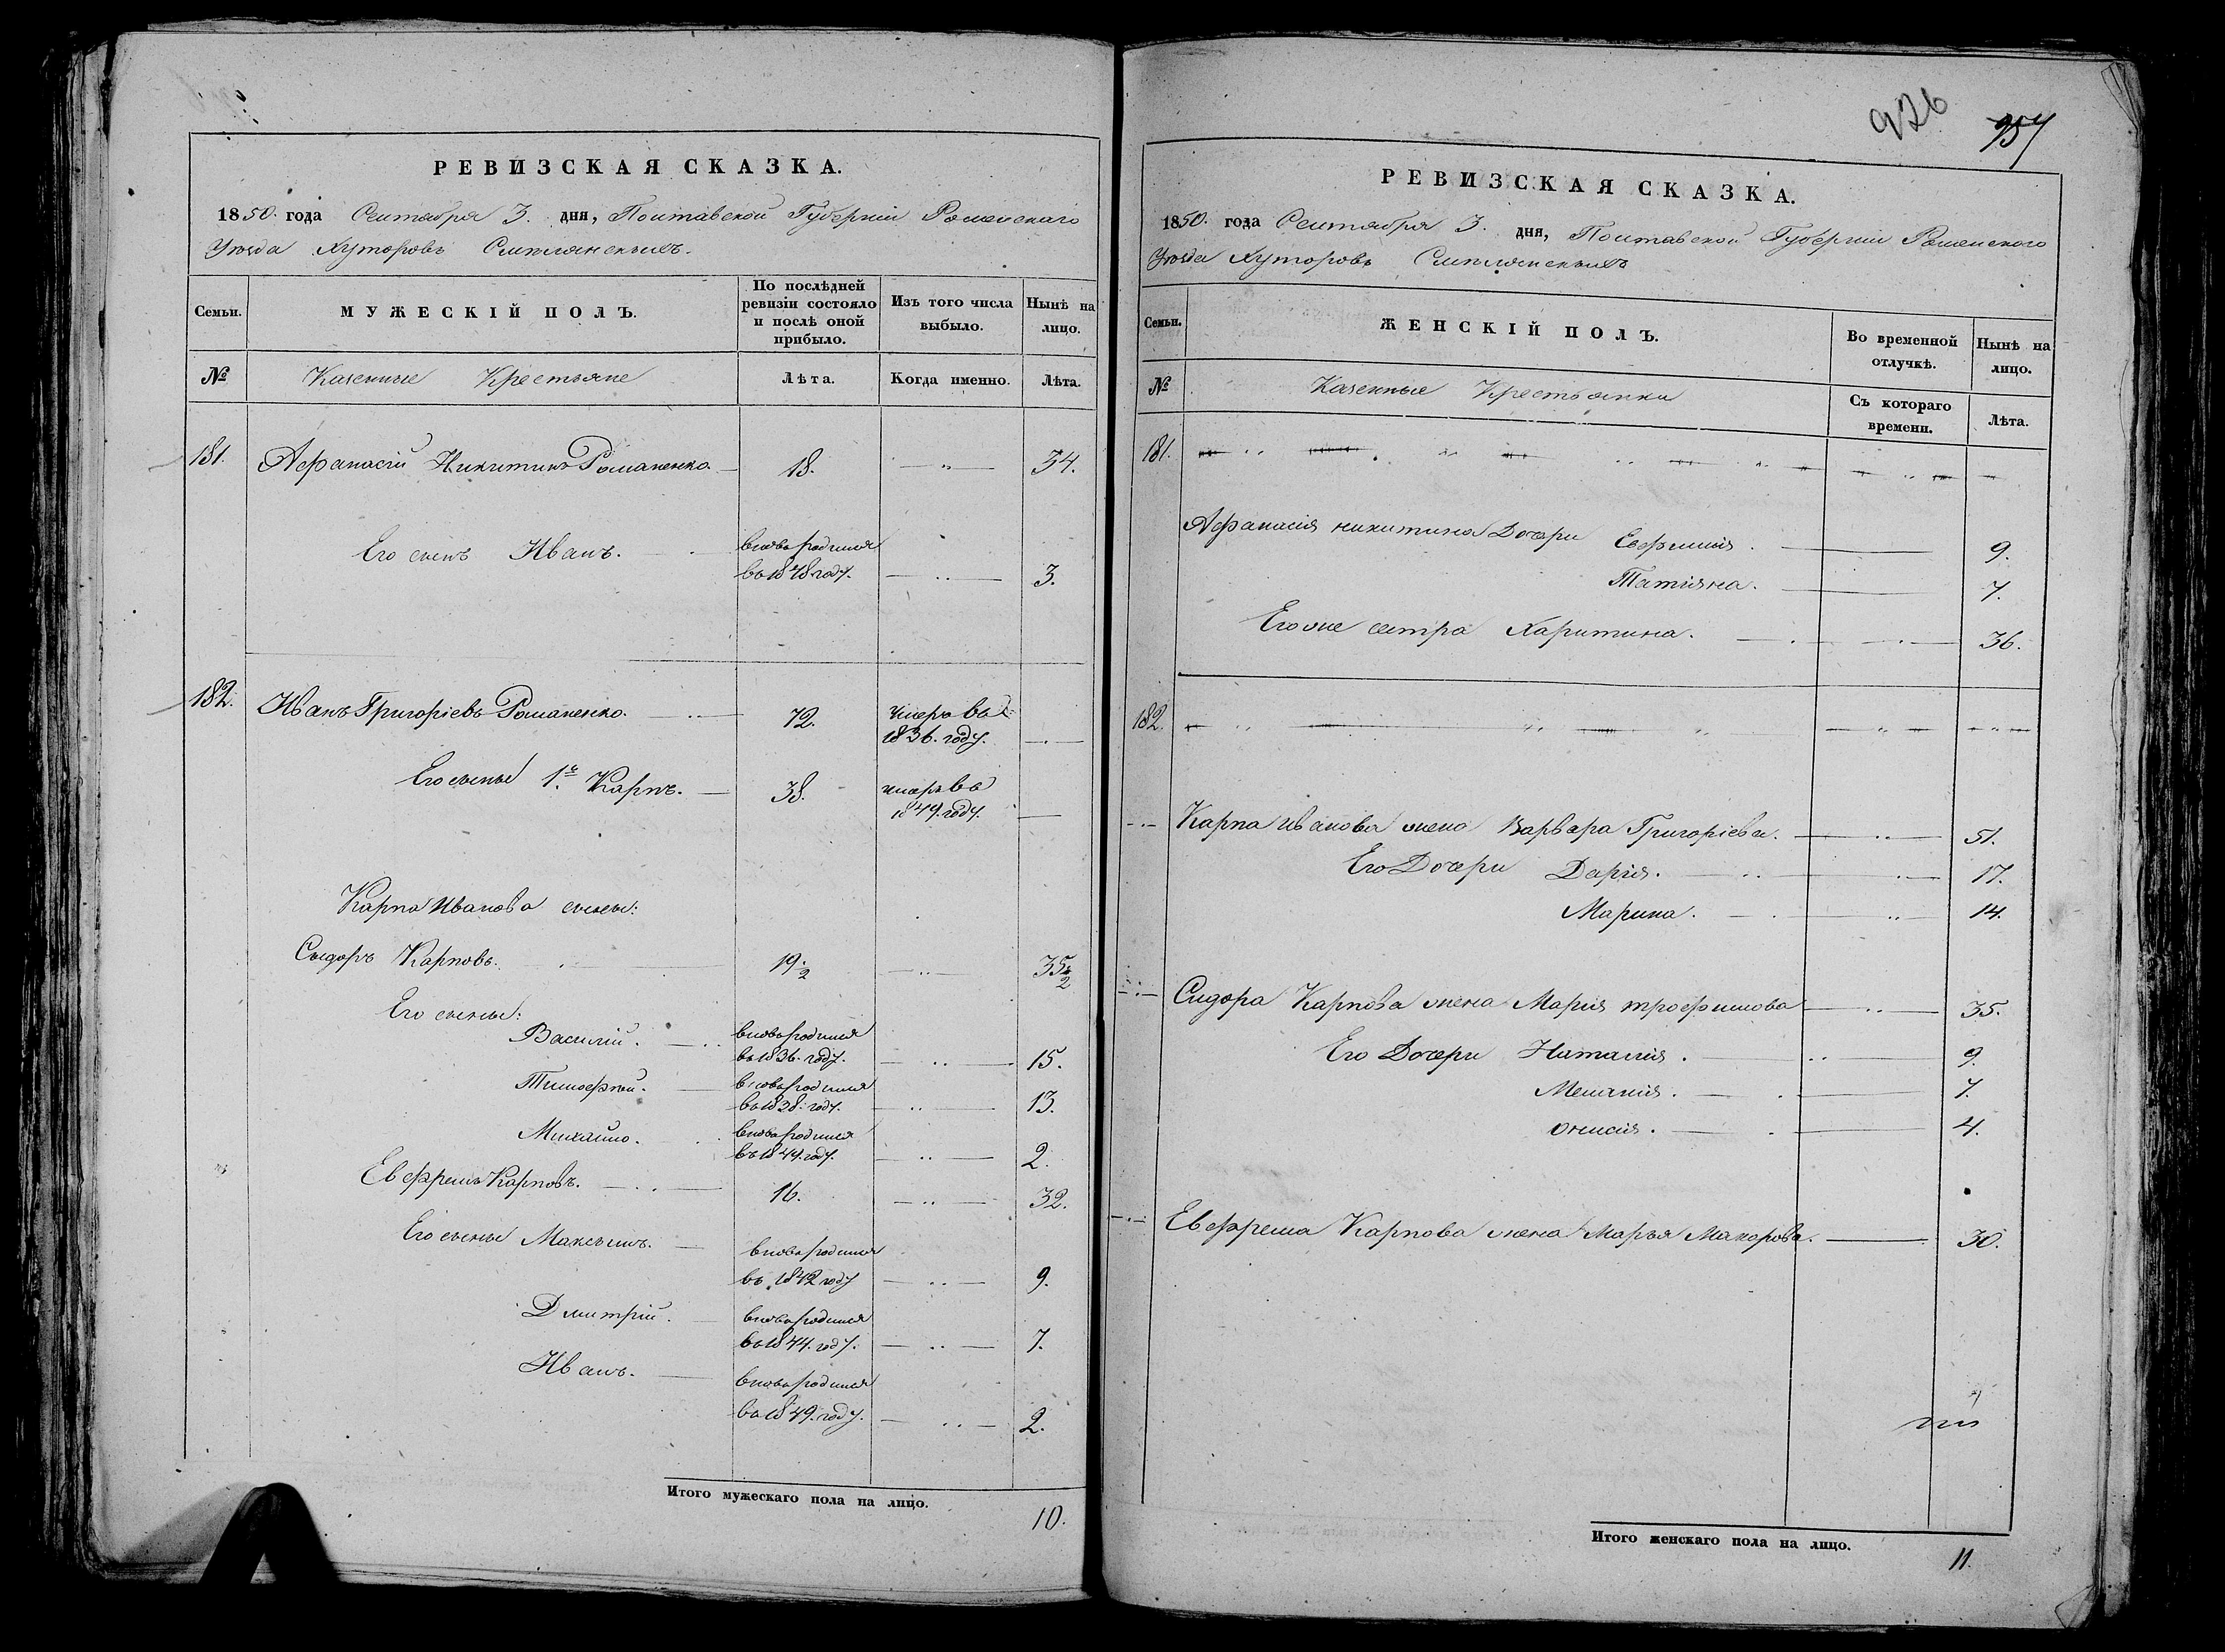 РЕВИЗСКАЯ СКАЗКА.
1850. года Сентября 3. дня, Полтавской Губерніи Роменскаго
Уѣзда Хуторовъ Смѣлянскихъ.
Семьи.
МУЖЕСКІЙ ПОЛЪ.
По послѣдней ревизіи состояло и послѣ оной прибыло.
Изъ того числа выбыло.
Нынѣ на лицо.
№
Казенные Крестьяне
Лѣта.
Когда именно.
Лѣта.
181. Афанасій Никитинъ Романенко. 18. 34.
Его сынъ Иванъ. вновь родился
въ 1848 году. 3.
182. Иванъ Григоріевъ Романенко. 72. умеръ въ
1836. году.
Его сыны 1й Карпъ. 38. умеръ въ
1849. году.
Карпа Иванова сыны:
Сыдоръ Карповъ. 19 1/2 35 1/2
Его сыны:
Василій. вновь родился
въ 1836. году. 15.
Тимофѣй. вновь родился
въ 1838. году. 13.
Михайло. вновь родился
въ 1849. году. 2.
Евфремъ Карповъ. 16. 32.
Его сыны Максымъ. вновь родился
въ 1842 году 9.
Дмитрій. вновь родился
въ 1844. году. 7.
Иванъ. вновь родился
въ 1849. году. 2.
Итого мужескаго пола на лицо. 10.
926 957
РЕВИЗСКАЯ СКАЗКА.
1850. года Сентября 3. дня, Полтавской Губерніи Роменского
Уѣзда Хуторовъ Смѣлянскихъ
Семьи.
ЖЕНСКІЙ ПОЛЪ.
Во временной отлучкѣ.
Нынѣ на лицо.
№
Казенные Крестьянки
Съ котораго времени.
Лѣта.
181.
Афанасія Никитина Дочери Евфимія. 9.
Татіяна. 7.
Его же сестра Харитина. 36.
182.
Карпа Иванова жена Варвара Григоріева. 51.
Его Дочери Дарія. 17.
Марина. 14.
Сидора Карпова жена Марія трофимова 35.
Его Дочери Наталія. 9.
Меланія. 7.
4.
Евфрема Карпова жена Марья Макарова. 30.
Итого женскаго пола на лицо. 11.